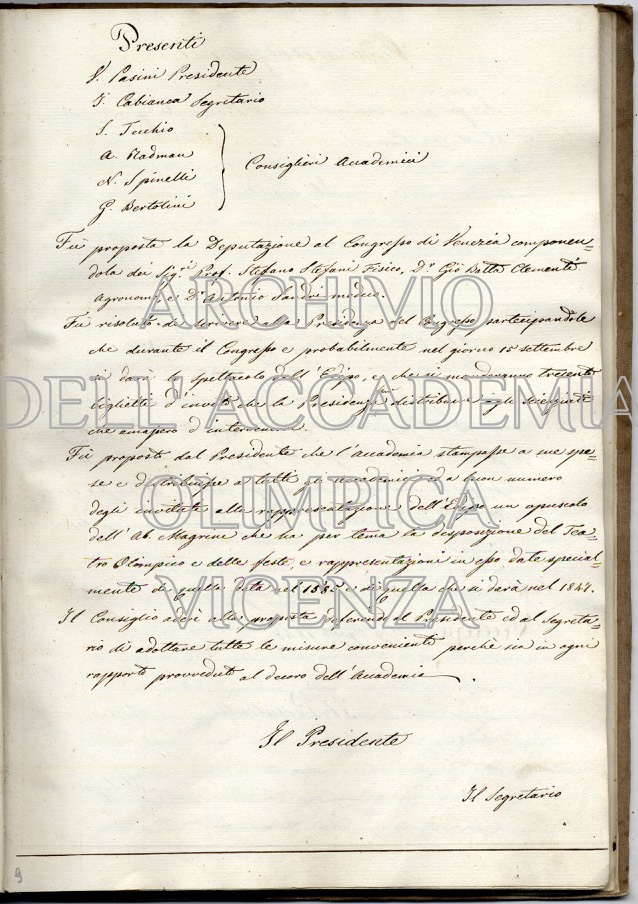 Presenti
V. Pasini Presidente
J. Cabianca Segretario
S. Tecchio
A. Radman
N. Spinelli
G. Bertolini
Consiglieri Accademici
Fù proposta la Deputazione al Congresso di Venezia componen=
dola dei Sig.ri Prof. Stefano Stefani Fisico, D.r Gio Batta Clementi
Agronomo, e D.r Antonio Sandri medico.
Fù risoluto di scrivere alla Presidenza del Congresso partecipandole
che durante il Congresso e probabilmente nel giorno 15 settembre
si darà lo spettacolo dell'Edipo, e che si manderanno trecento
biglietti d'invito che la Presidenza distribuirà agli scienziati
che amassero d'intervenirvi.
Fù proposto dal Presidente che l'Accademia stampasse a sue spe=
se e distribuisse a tutti gli accademici ed a buon numero
degli invitati alla rappresentazione dell'Edipo un opuscolo
dell'Ab. Magrini che ha per tema la desposizione del Tea=
tro Olimpico e delle feste, e rappresentazioni in esso date special=
mente di quella data nel e di quella che si darà nel 1847.
Il Consiglio aderì alla proposta diferendo al Presidente ed al Segreta=
rio di adottare tutte le misure conveniente perchè sia in ogni
rapporto provveduto al decoro dell'Accademia.
Il Presidente
Il Segretario
9
ARCHIVIO
DELL'ACCADEMIA
OLIMPICA
VICENZA